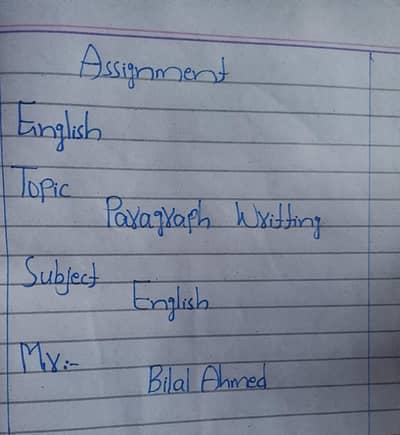 Assignment
English
Topic
Paragraph Writting
Subject
English
Mr:-
Bilal Ahmed